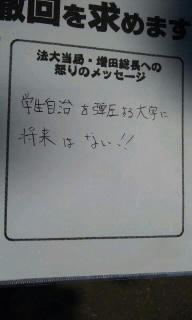 撤回を求めます
法大当局・増田総長への
怒りのメッセージ
学生自治を弾圧する大学に
将来はない!!